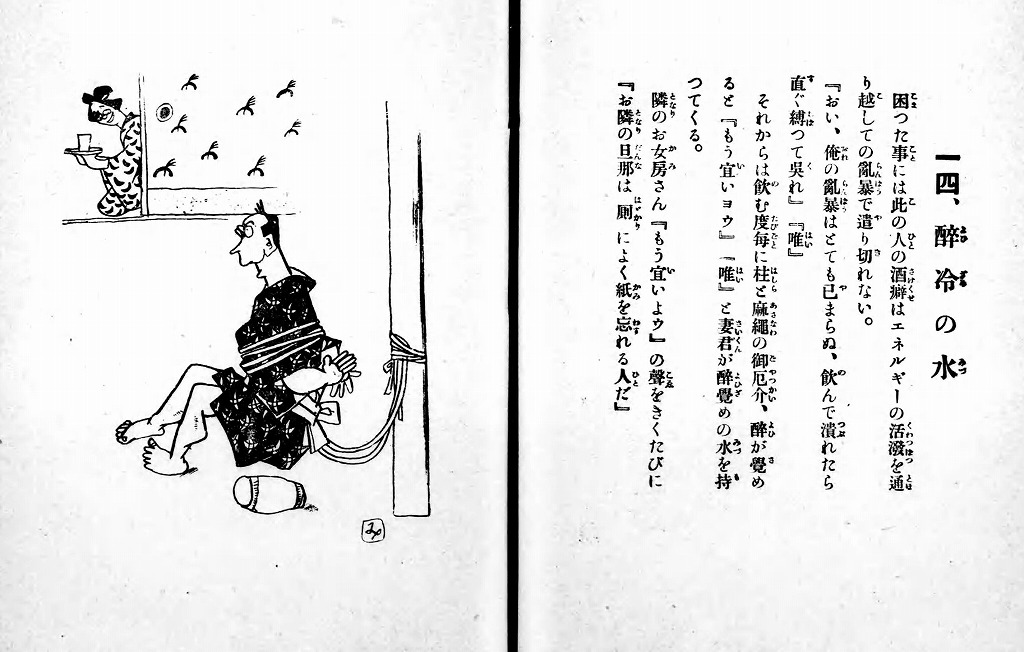 一四、醉冷の水
困つた事には此の人の酒癖はエネルギーの活潑を通
り越しての亂暴で遣り切れない。
『おい、俺の亂暴はとても已まらぬ、飮んで潰れたら
直ぐ縛つて吳れ』『唯』
それからは飮む度每に柱と麻繩の御厄介、醉が覺め
ると『もう宜いョウ』『唯』と妻君が醉覺めの水を持
つてくる。
隣のお女房さん『もう宜いよゥ』の聲をきくたびに
『お隣の旦那は厠によく紙を忘れる人だ』